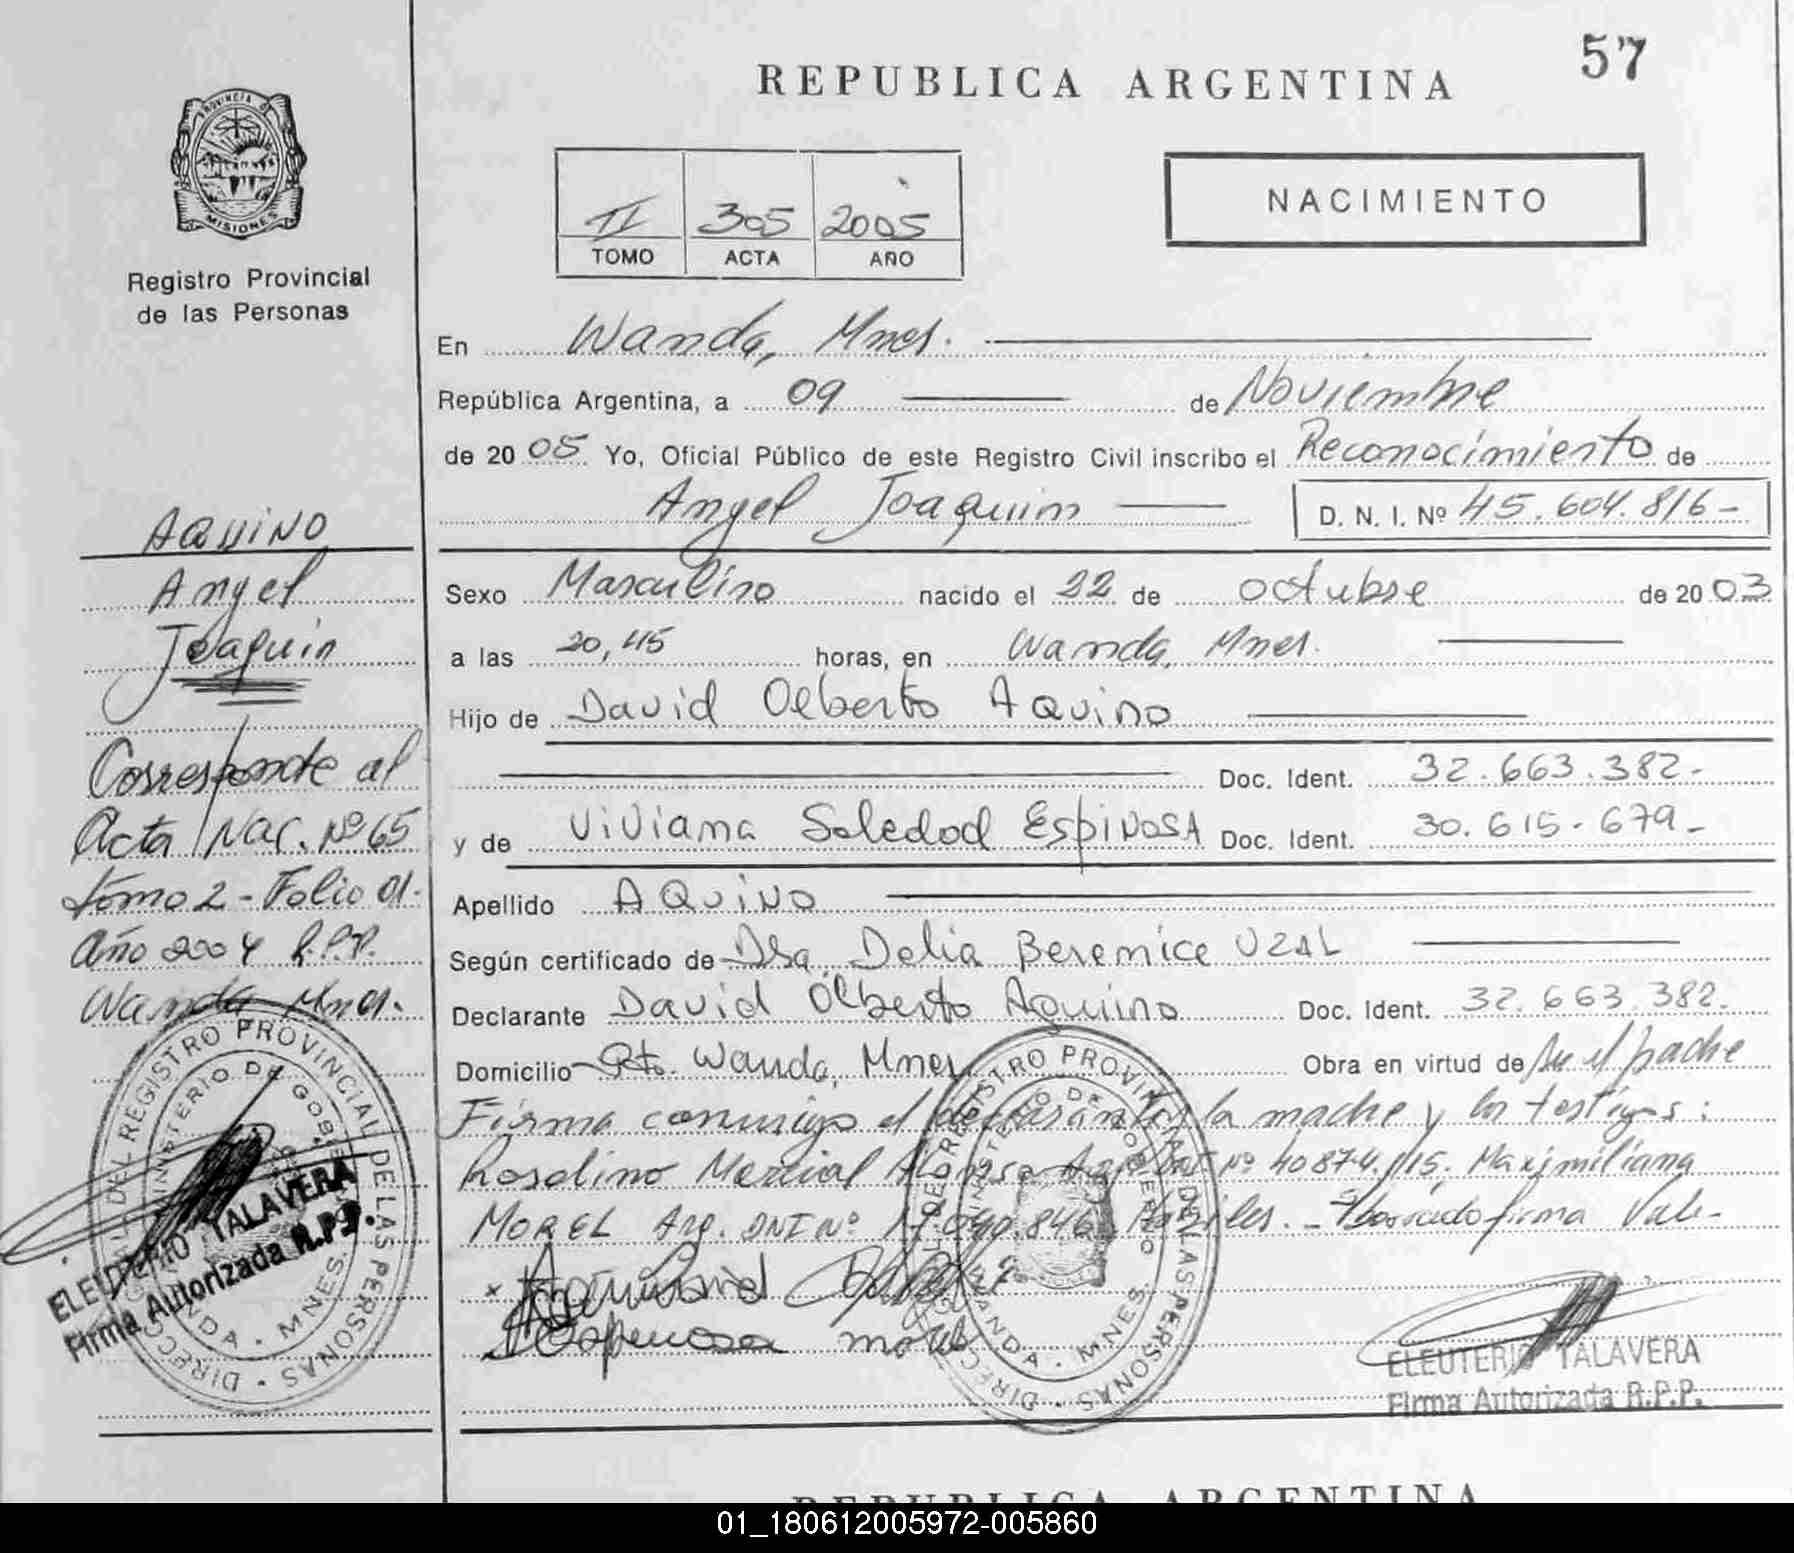 57
REPUBLICA ARGENTINA
PROVINCIA D
MISIONES
Registro Provincial
de las Personas
II 305 2005
TOMO ACTA AÑO
NACIMIENTO
En Wanda, Mnes.
República Argentina, a 09 de Noviembre
de 2005 Yo, Oficial Público de este Registro Civil inscribo el Reconocimiento de
Angel Joaquin D. N. I. Nº 45.604.816-
AQUINO
Angel
Joaquin
Corresponde al
Acta Nac. Nº 65
tomo 2 - Folio 01.
Año 2004 R.P.P.
Wanda Mnes.
Sexo Masculino nacido el 22 de octubre de 2003
a las 20,45 horas, en Wanda, Mnes.
Hijo de David Alberto Aquino
Doc. Ident. 32.663.382-
y de Viviana Soledad EspiNOSA Doc. Ident. 30.615.679-
Apellido AQUiNO
Según certificado de Dra. Delia Berenice UZAL
Declarante David Alberto Aquino Doc. Ident. 32.663.382.
Domicilio Pto. Wanda, Mnes. Obra en virtud de ser el padre
Firma conmigo el declarante, la madre y los testigos:
Rosalino Marcial Arg. DNI Nº Maximiliana
MOREL Arg. DNI Nº 17.090.846 firma Vale-
Espinosa
ELEUTERIO TALAVERA
Firma Autorizada R.P.P.
DIRECC DEL REGISTRO PROVINCIAL DE LAS PERSONAS
MINISTERIO DE GOBIERNO
WANDA - MNES.
ELEUTERIO TALAVERA
Firma Autorizada R.P.P.
DIRECC DEL REGISTRO PROVINCIAL DE LAS PERSONAS
MINISTERIO DE GOBIERNO
WANDA - MNES.
REPUBLICA ARGENTINA
01_180612005972-005860